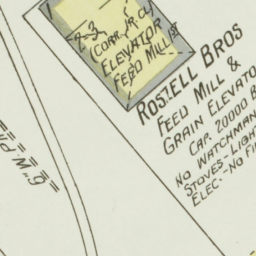 (CORR. IR. CL)
ELEVATOR
FEED MILL 1ST
ROSZELL BROS
FEED MILL &
GRAIN ELEVATO
CAP. 20000 B
NO WATCHMAN
STOVES - LIGHT
ELEC - NO FI
6" W. PIPE